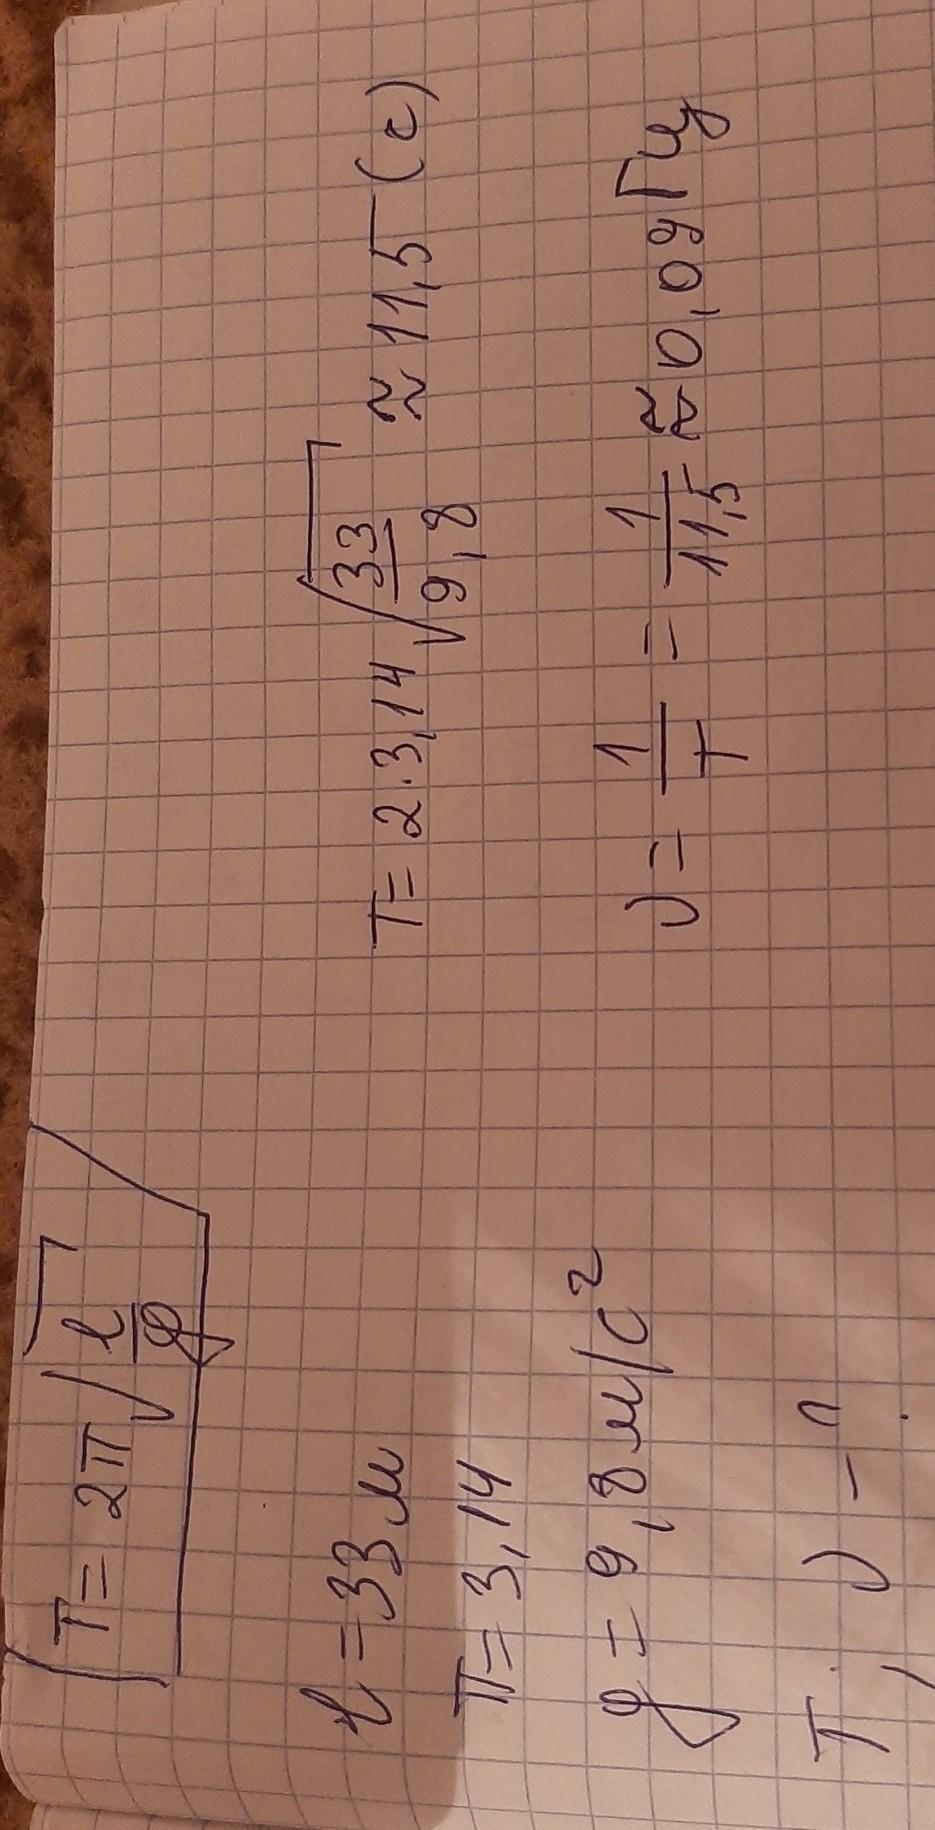 T = 2π√(l/g)
l = 33 м
π = 3,14
g = 9,8 м/с²
T, ν - ?
T = 2·3,14 √(33/9,8) ≈ 11,5 (с)
ν = 1/T = 1/11,5 = ≈ 0,09 Гц